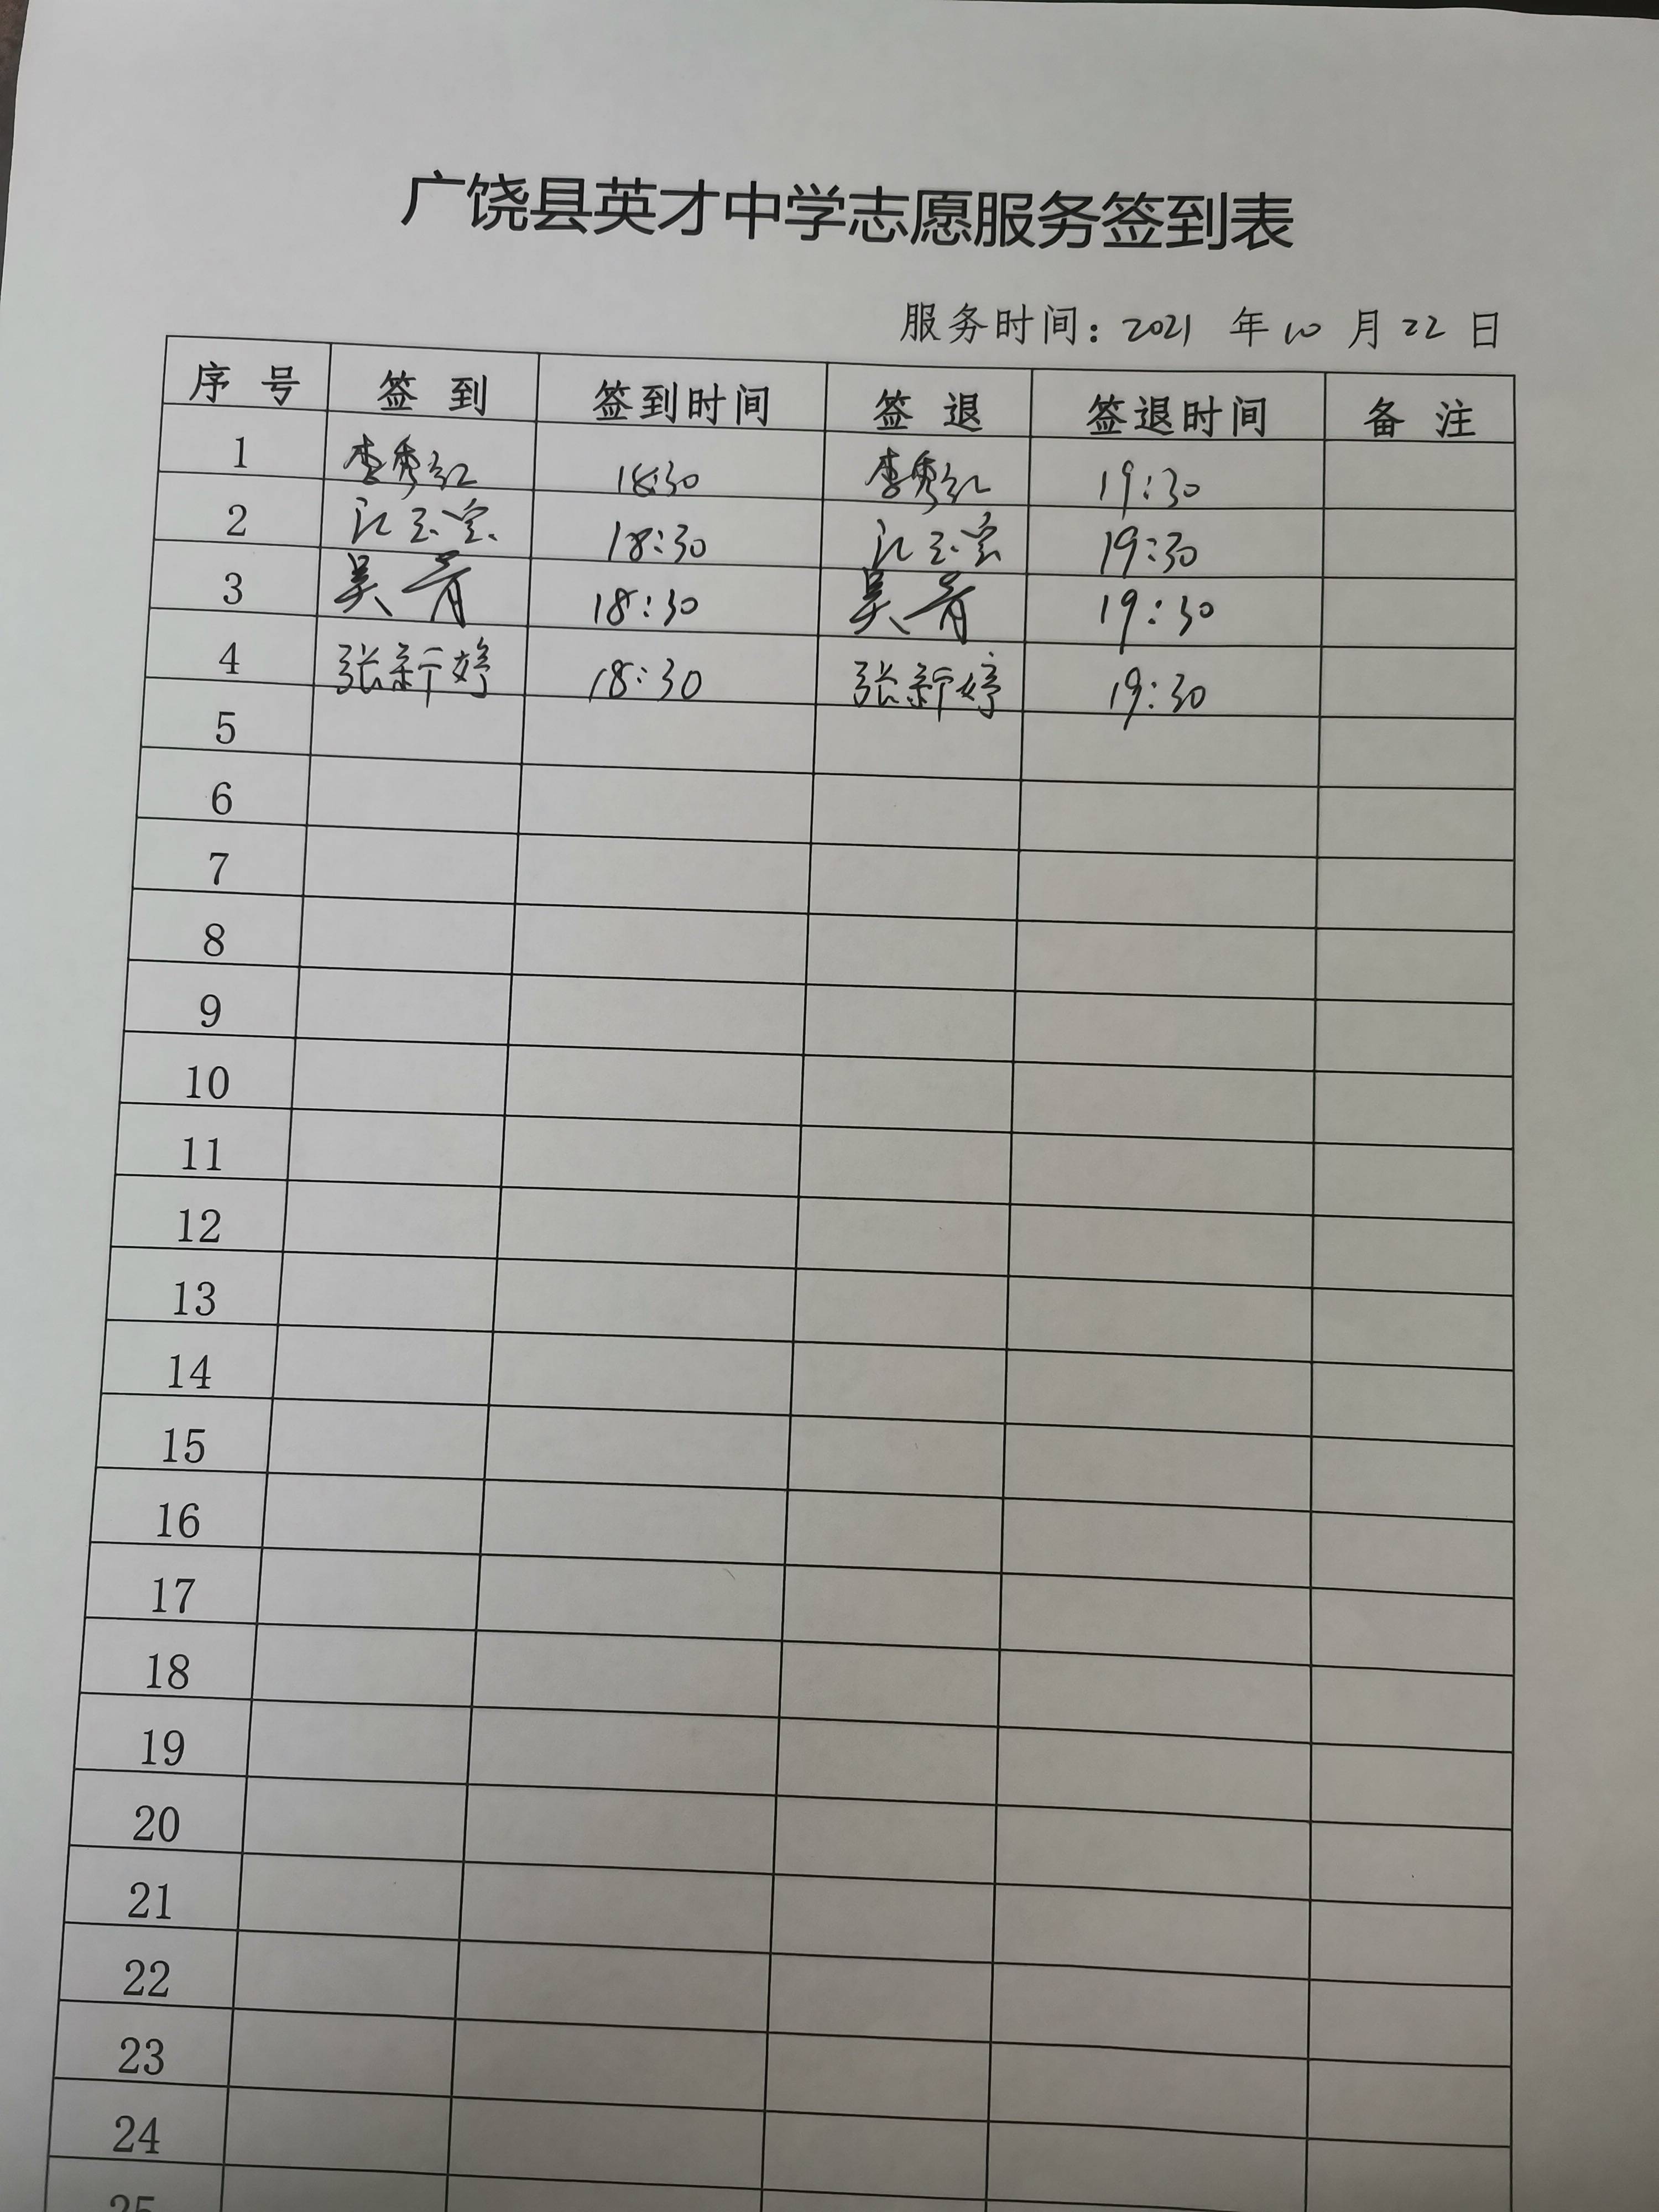 广饶县英才中学志愿服务签到表
服务时间：2021 年 10 月 22 日
序 号 签 到 签到时间 签 退 签退时间 备 注
1 李秀红 18:30 李秀红 19:30
2 18:30 19:30
3 吴青 18:30 吴青 19:30
4 张新婷 18:30 张新婷 19:30
5
6
7
8
9
10
11
12
13
14
15
16
17
18
19
20
21
22
23
24
25